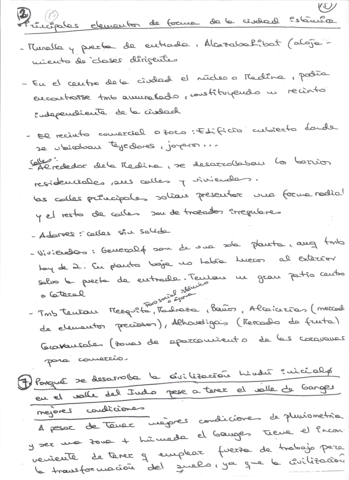 ②
Principales elementos de forma de la ciudad islámica
- Muralla y puerta de entrada, Alcazaba (aloja-
miento de clases dirigentes
- En el centro de la ciudad el núcleo o Medina, podía
encontrarse tmb amurallado, constituyendo un recinto
independiente de la ciudad
- El recinto comercial o zoco: Edificio cubierto donde
se ubicaban tejedores, joyeros...
Calles:
- Alrededor de la Medina, se desarrollaban los barrios
residenciales, sus calles y viviendas.
Las calles principales solían presentar una forma radial
y el resto de calles son de trazados irregulares
- Adarves: calles sin salida
- Viviendas: General% son de una sola planta, aunq tmb
hay de 2. En planta baja no había huecos al exterior
salvo la puerta de entrada. Tenían un gran patio central
o lateral
- Tmb Tenían Mezquita, Madraza, Baños, Alcaicerías (mercad
de elementos preciosos), Alhóndigas (Mercado de fruta)
Caravansales (zonas de aparcamiento de las caravanas
para comercio.
⑦ Porqué se desarrolla la civilización hindú inicial%
en el valle del Indo pese a tener el valle de Ganges
mejores condiciones
A pesar de tener mejores condiciones de pluviometria
y ser una zona + húmeda el Ganges tiene el incon-
veniente de tener q emplear fuerza de trabajo para
la transformación del suelo, ya que la civilización